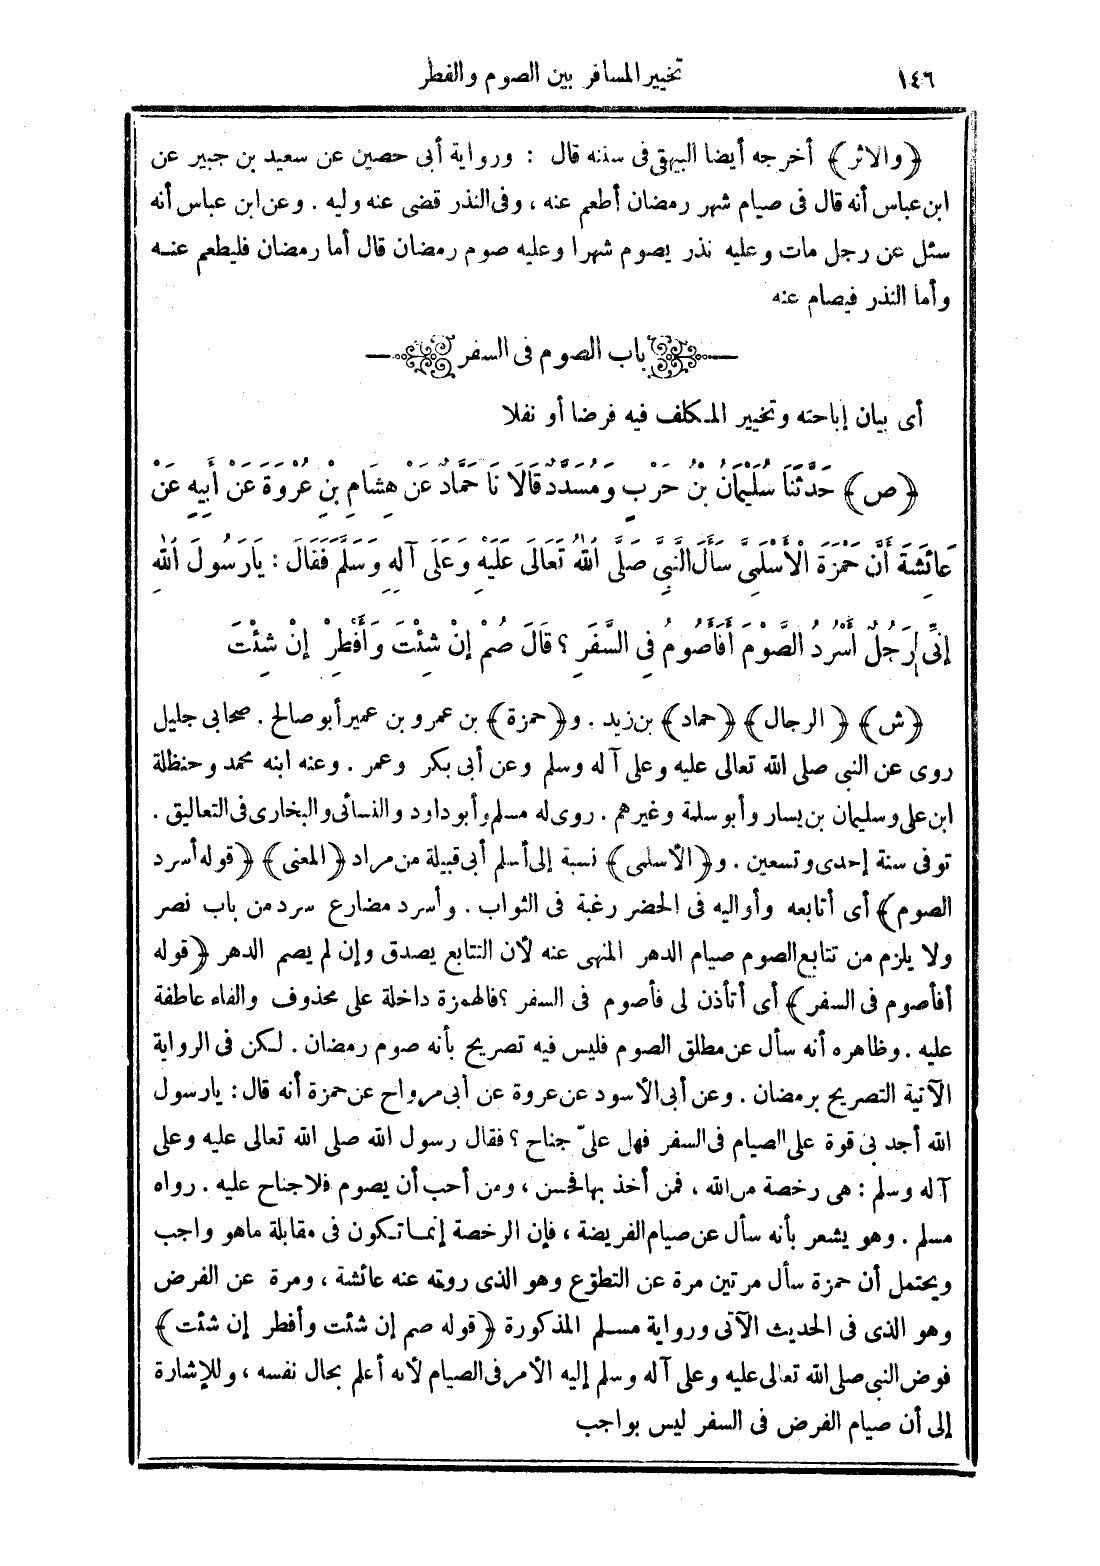 ١٤٦ تخيير المسافر بين الصوم والفطر
﴿والاثر﴾ أخرجه أيضا البيهقى فى سننه قال : ورواية أبى حصين عن سعيد بن جبير عن
ابن عباس أنه قال فى صيام شهر رمضان أطعم عنه ، وفى النذر قضى عنه وليه . وعن ابن عباس أنه
سئل عن رجل مات وعليه نذر يصوم شهرا وعليه صوم رمضان قال أما رمضان فليطعم عنه
وأما النذر فيصام عنه
باب الصوم فى السفر
أى بيان إباحته وتخيير المكلف فيه فرضا أو نفلا
﴿ص﴾ حَدَّثَنَا سُلَيْمَانُ بْنُ حَرْبٍ وَمُسَدَّدٌ قَالَا نَا حَمَّادٌ عَنْ هِشَامِ بْنِ عُرْوَةَ عَنْ أَبِيهِ عَنْ
عَائِشَةَ أَنَّ حَمْزَةَ الْأَسْلَمِىَّ سَأَلَ النَّبِىَّ صَلَّى اللهُ تَعَالَى عَلَيْهِ وَعَلَى آلِهِ وَسَلَّمَ فَقَالَ : يَارَسُولَ اللهِ
إِنِّى رَجُلٌ أَسْرُدُ الصَّوْمَ أَفَأَصُومُ فِى السَّفَرِ ؟ قَالَ صُمْ إِنْ شِئْتَ وَأَفْطِرْ إِنْ شِئْتَ
﴿ش﴾ ﴿الرجال﴾ ﴿حماد﴾ بن زيد . و﴿حمزة﴾ بن عمرو بن عمير أبو صالح . صحابى جليل
روى عن النبى صلى الله تعالى عليه وعلى آله وسلم وعن أبى بكر وعمر . وعنه ابنه محمد وحنظلة
ابن على وسليمان بن يسار وأبو سلمة وغيرهم . روى له مسلم وأبو داود والنسائى والبخارى فى التعاليق .
توفى سنة إحدى وتسعين . و﴿الأسلمى﴾ نسبة إلى أسلم أبى قبيلة من مراد ﴿المعنى﴾ ﴿قوله أسرد
الصوم﴾ أى أتابعه وأواليه فى الحضر رغبة فى الثواب . وأسرد مضارع سرد من باب نصر
ولا يلزم من تتابع الصوم صيام الدهر المنهى عنه لأن التتابع يصدق وإن لم يصم الدهر ﴿قوله
أفأصوم فى السفر﴾ أى أتأذن لى فأصوم فى السفر ؟ فالهمزة داخلة على محذوف والفاء عاطفة
عليه . وظاهره أنه سأل عن مطلق الصوم فليس فيه تصريح بأنه صوم رمضان . لكن فى الرواية
الآتية التصريح برمضان . وعن أبى الأسود عن عروة عن أبى مرواح عن حمزة أنه قال : يارسول
الله أجد بى قوة على الصيام فى السفر فهل علىّ جناح ؟ فقال رسول الله صلى الله تعالى عليه وعلى
آله وسلم : هى رخصة من الله ، فمن أخذ بها فحسن ، ومن أحب أن يصوم فلا جناح عليه . رواه
مسلم . وهو يشعر بأنه سأل عن صيام الفريضة ، فإن الرخصة إنما تكون فى مقابلة ماهو واجب
ويحتمل أن حمزة سأل مرتين مرة عن التطوّع وهو الذى روته عنه عائشة ، ومرة عن الفرض
وهو الذى فى الحديث الآتى ورواية مسلم المذكورة ﴿قوله صم إن شئت وأفطر إن شئت﴾
فوض النبى صلى الله تعالى عليه وعلى آله وسلم إليه الأمر فى الصيام لأنه أعلم بحال نفسه ، وللإشارة
إلى أن صيام الفرض فى السفر ليس بواجب